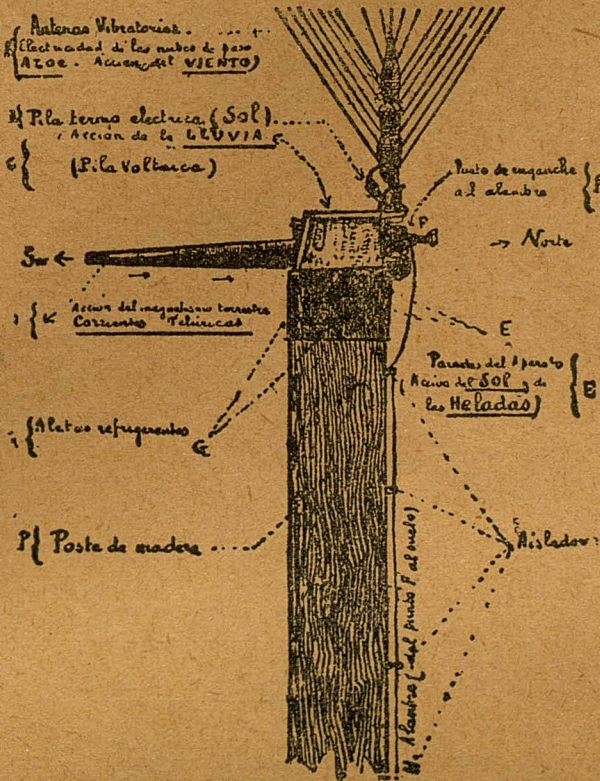 Antenas Vibratorias.
Electricidad de las nubes de paso
AZOE. Accion del VIENTO)
Pila termo electrica (Sol)
Acción de la LLUVIA
(Pila Voltaica)
Punto de enganche
al alambre
P
Sur ←
→ Norte
K { Acción del magnetismo terrestre
Corrientes Telúricas
E
Paredes del Aparato
(Accion del SOL y de
las Heladas)
} E
{ Aletas refrigerentes
G
P { Poste de madera
Aislador
H. Alambre (del punto P al suelo)